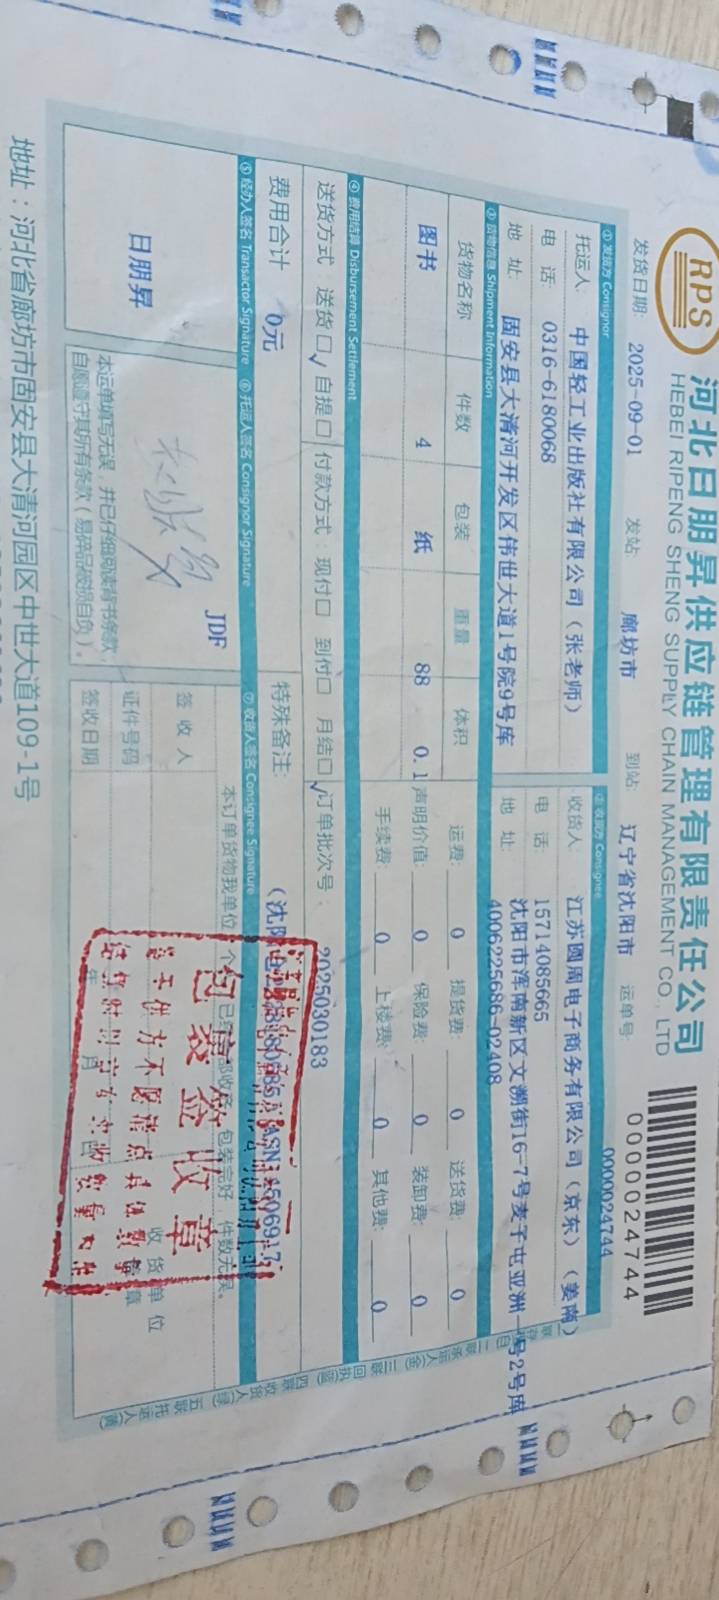 RPS
河北日朋昇供应链管理有限责任公司
HEBEI RIPENG SHENG SUPPLY CHAIN MANAGEMENT CO., LTD
0000024744
发货日期: 2025-09-01 发站: 廊坊市 到站: 辽宁省沈阳市 运单号 0000024744
① 发货方 Consignor
托运人: 中国轻工业出版社有限公司（张老师）
电 话: 0316-6180068
地 址: 固安县大清河开发区伟世大道1号院9号库
② 收货方 Consignee
收货人: 江苏圆周电子商务有限公司（京东）（姜南）
电 话: 15714085665
4006225686-02408
地 址: 沈阳市浑南新区文溯街16-7号麦子屯亚洲一号2号库
③ 货物信息 Shipment Information
货物名称 件数 包装 重量 体积
图书 4 纸 88 0.1
运费: 0 提货费: 0 送货费: 0
声明价值: 0 保险费: 0 装卸费: 0
手续费: 0 上楼费: 0 其他费: 0
④ 费用结算 Disbursement Settlement
送货方式: 送货□✓ 自提□ 付款方式: 现付□ 到付□ 月结□✓ 订单批次号: 2025030183
费用合计 0元 特殊备注:
⑤ 经办人签名 Transactor Signature
日朋昇
⑥ 托运人签名 Consignor Signature
JDF
本运单填写无误，并已仔细阅读背书条款，
自愿遵守其所有条款（易碎品破损自负）。
⑦ 收货人签名 Consignee Signature
本订单货物我单位 个 已全部收齐，包装完好，件数无误。
签 收 人
证件号码
签收日期 年 月 日
收货单位
章
包裹签收章
地址：河北省廊坊市固安县大清河园区中世大道109-1号